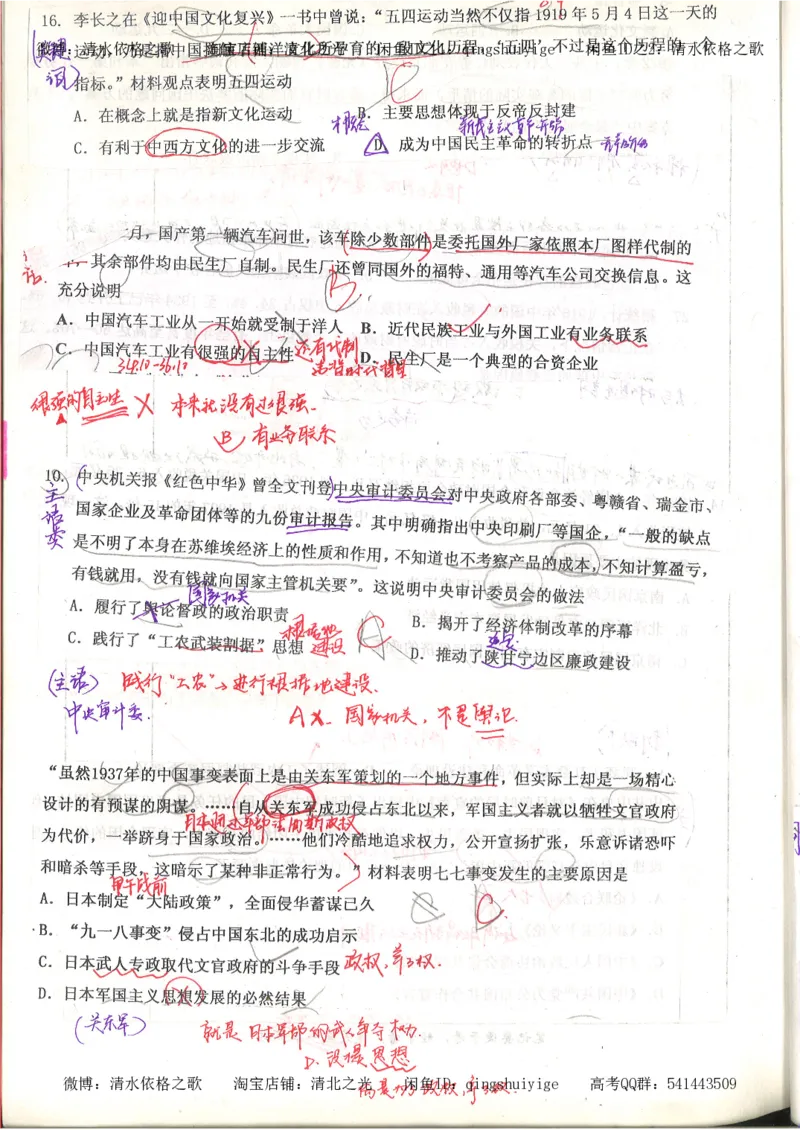 16. 李长之在《迎中国文化复兴》一书中曾说：“五四运动当然不仅指 1919 年 5 月 4 日这一天的
微博：清水依格之歌 淘宝店铺：清北之光 闲鱼ID：qingshuiyige 闲鱼ID：清水依格之歌
运动，乃是指中国接触西洋文化所孕育的一段文化历程，‘五四’不过是这个历程的一个
指标。”材料观点表明五四运动
关键词
C
A. 在概念上就是指新文化运动 B. 主要思想体现于反帝反封建
概念 新民主主义革命开端
C. 有利于中西方文化的进一步交流 D. 成为中国民主革命的转折点
二月，国产第一辆汽车问世，该车除少数部件是委托国外厂家依照本厂图样代制的
其余部件均由民生厂自制。民生厂还曾同国外的福特、通用等汽车公司交换信息。这
充分说明
B
A. 中国汽车工业从一开始就受制于洋人 B. 近代民族工业与外国工业有业务联系
C. 中国汽车工业有很强的自主性 还有代制 D. 民生厂是一个典型的合资企业
很强的自主性 X 本来就没有过很强.
B 有业务联系
10. 中央机关报《红色中华》曾全文刊登中央审计委员会对中央政府各部委、粤赣省、瑞金市、
国家企业及革命团体等的九份审计报告。其中明确指出中央印刷厂等国企，“一般的缺点
是不明了本身在苏维埃经济上的性质和作用，不知道也不考察产品的成本，不知计算盈亏，
有钱就用，没有钱就向国家主管机关要”。这说明中央审计委员会的做法
国家机关
A. 履行了舆论督政的政治职责 B. 揭开了经济体制改革的序幕
根据地建设 C
C. 践行了“工农武装割据”思想 D. 推动了陕甘宁边区廉政建设
(主语) 践行“工农”→进行根据地建设.
中央审计委.
A X. 国家机关，不是舆论.
“虽然1937年的中国事变表面上是由关东军策划的一个地方事件，但实际上却是一场精心
设计的有预谋的阴谋。……自从关东军成功侵占东北以来，军国主义者就以牺牲文官政府
为代价，一举跻身于国家政治。……他们冷酷地追求权力，公开宣扬扩张，乐意诉诸恐吓
和暗杀等手段，这暗示了某种非正常行为。”材料表明七七事变发生的主要原因是
甲午战前
A. 日本制定“大陆政策”，全面侵华蓄谋已久
C.
B. “九一八事变”侵占中国东北的成功启示
C. 日本武人专政取代文官政府的斗争手段 政权，军权.
D. 日本军国主义思想发展的必然结果
(关东军) 就是日本军部的武人争夺权力.
D. 没提思想
微博：清水依格之歌 淘宝店铺：清北之光 闲鱼ID：qingshuiyige 高考QQ群：541443509